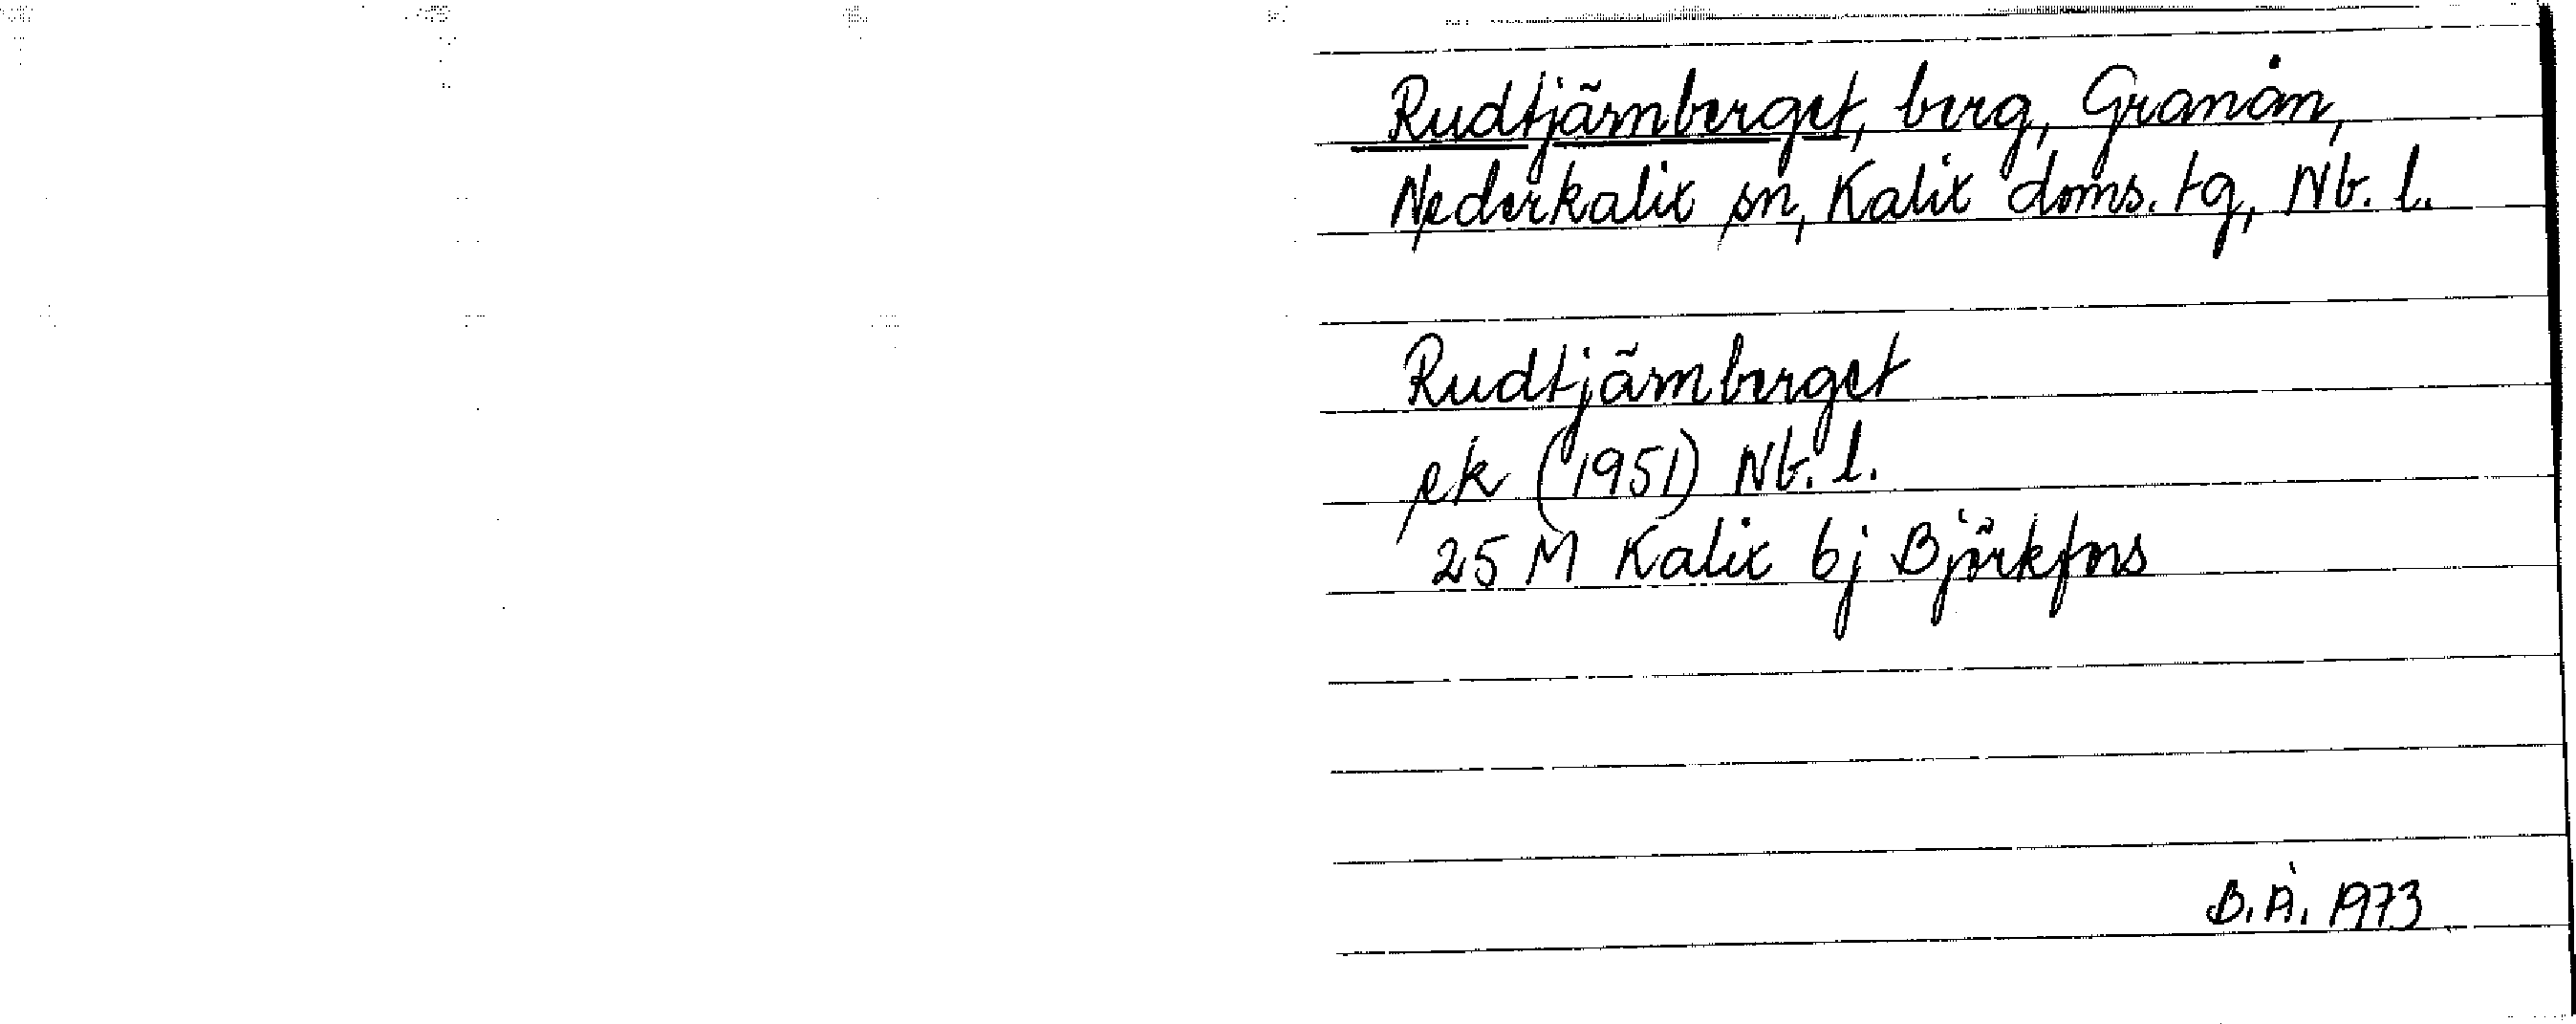 Rudtjärnberget, berg, Granån,
Nederkalix sn, Kalix doms. tg, Nb. l.
Rudtjärnberget
ek (1951) Nb. l.
25 M Kalix bj Björkfors
B.Å. 1973